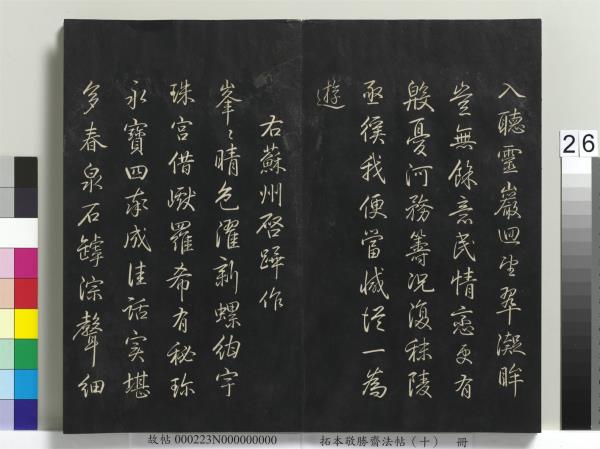 入聽靈巖迴望翠凝眸
豈無餘意民情戀更有
殷憂河務籌況復秣陵
亟徯我便當減從一為
遊
右蘇州啓蹕作
峯〻晴色濯新螺紺宇
珠宮借巘羅希有秘珍
永寶四奉成佳話实堪
多春泉石罅淙聲細
26
故帖 000223N000000000
拓本敬勝齋法帖（十） 冊